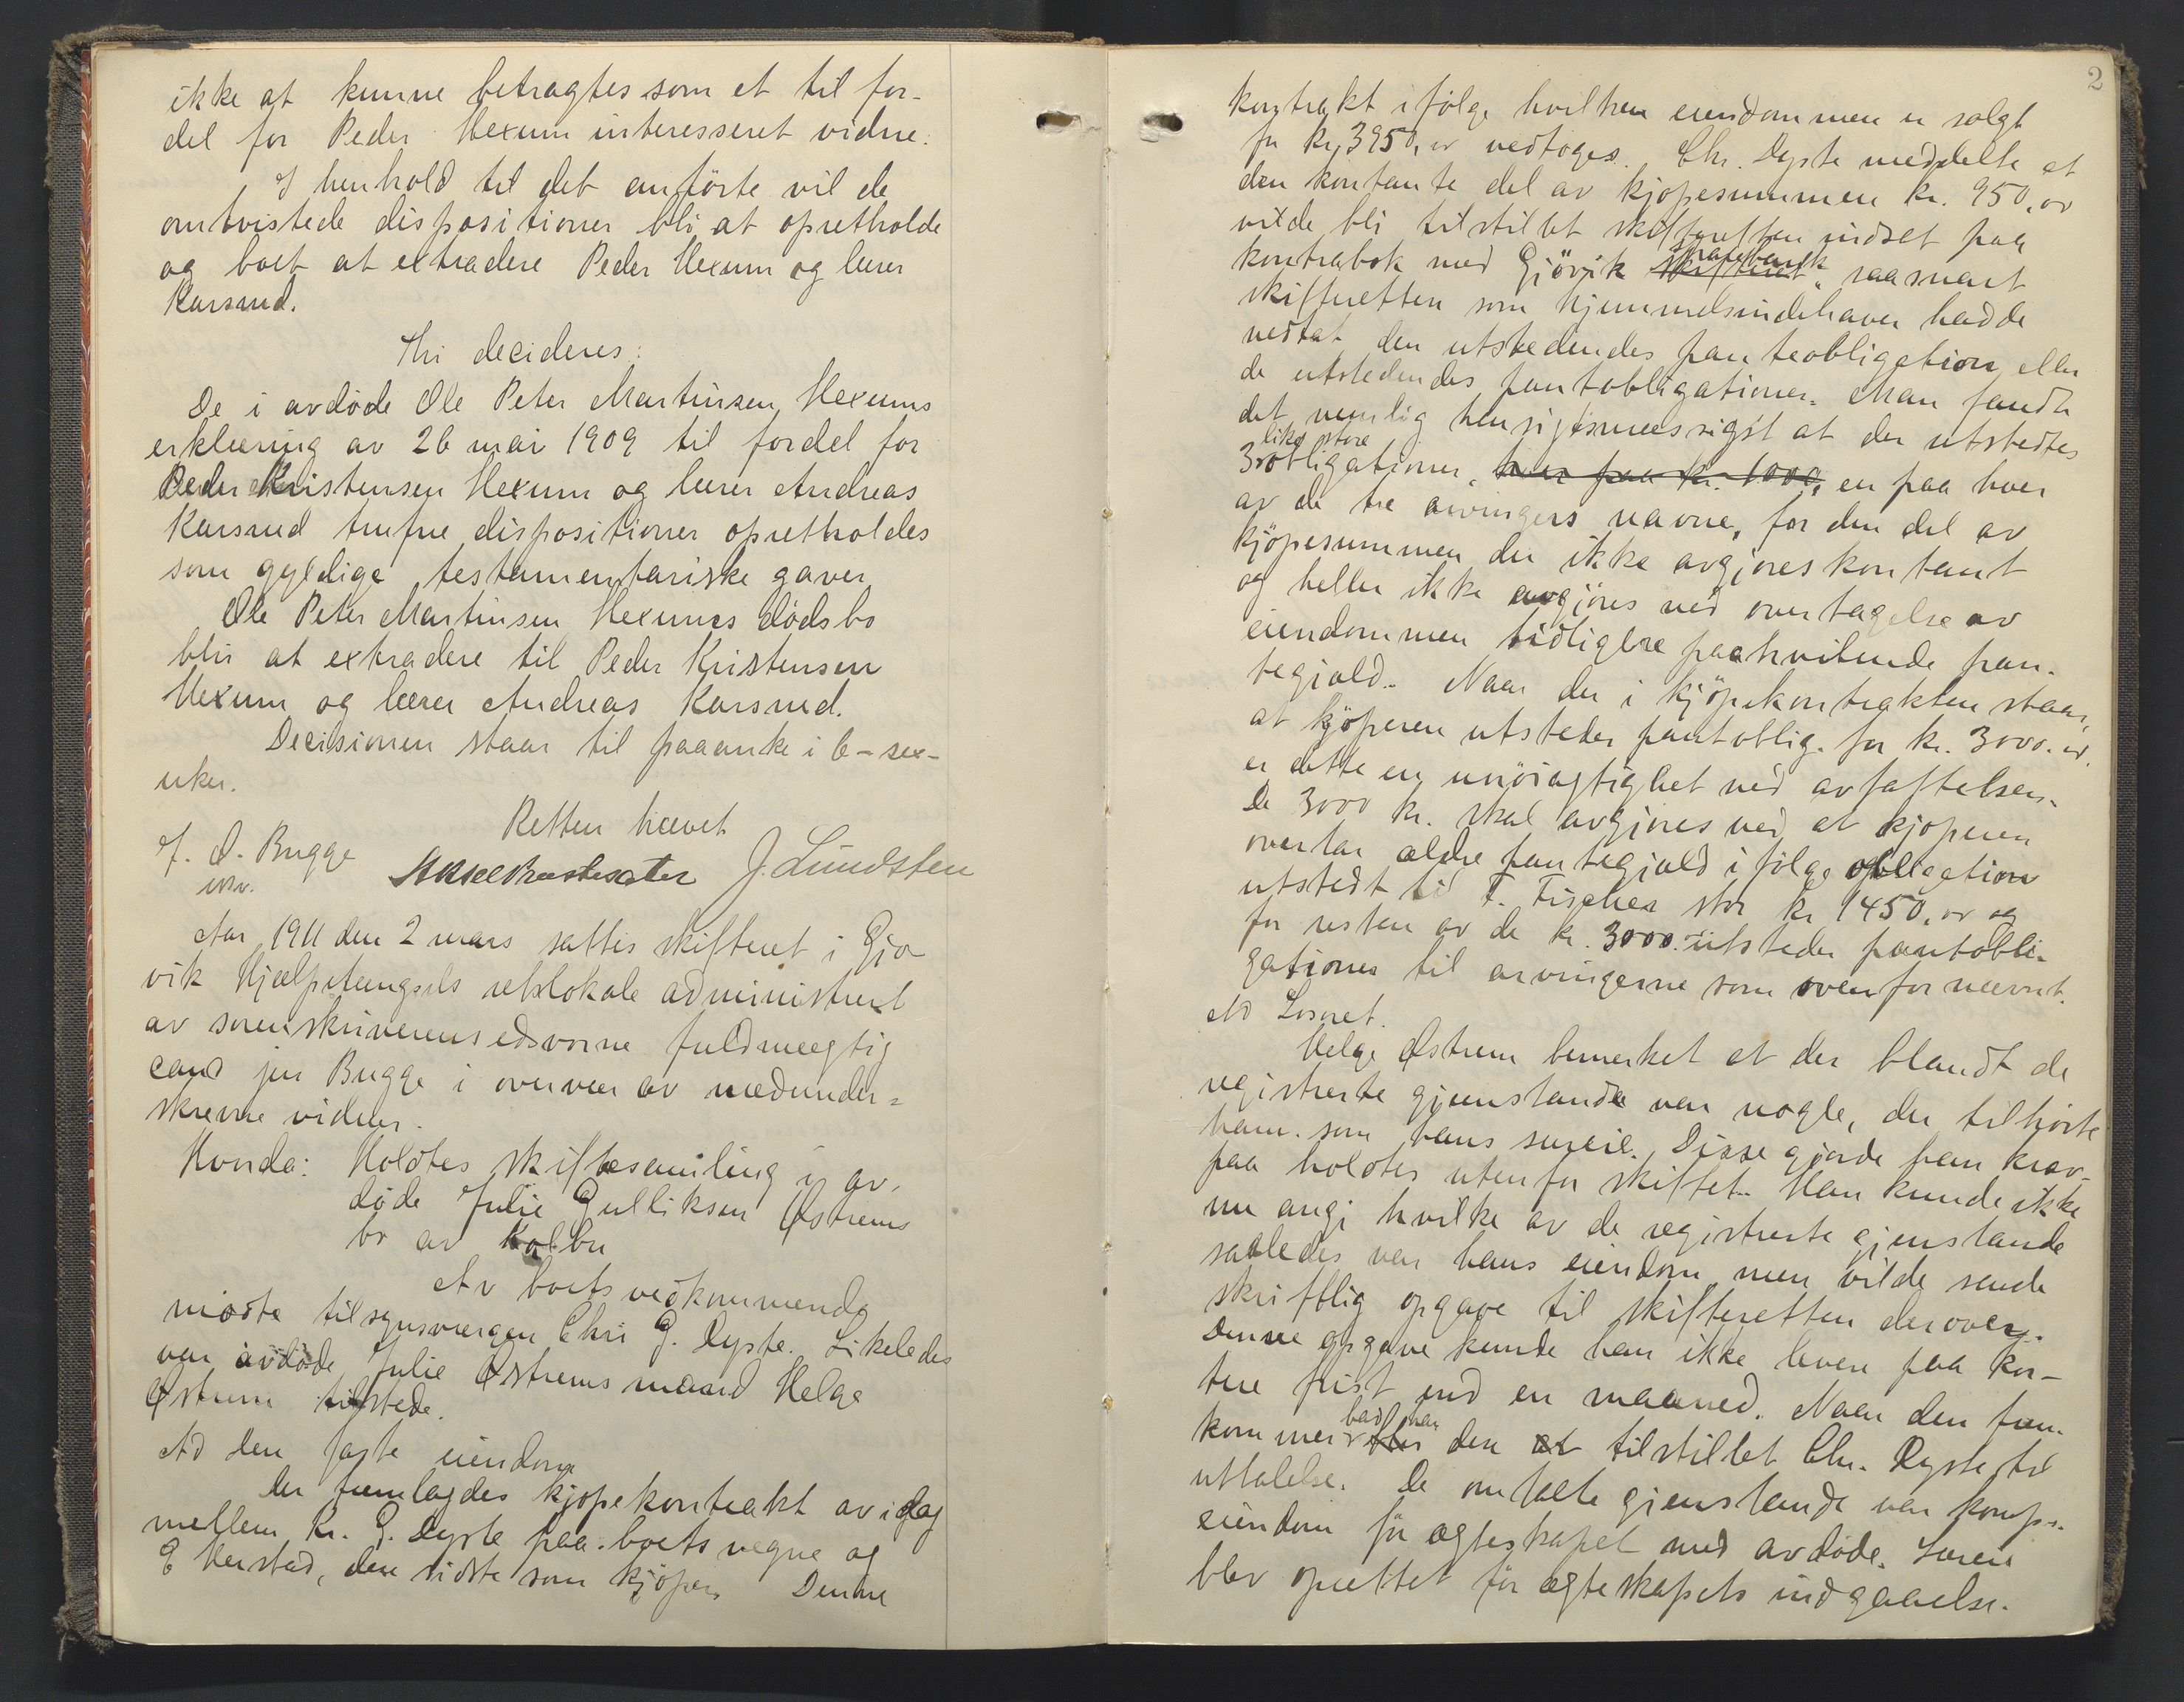 ikke at kunne betragtes som et til for-
del for Peder Hexum interesseret vidne.
I henhold til det anførte vil de
omtvistede dispositioner bli at opretholde
og boet at extradere Peder Hexum og lærer
Karsrud.
Thi decideres:
De i avdøde Ole Peter Martinsen Hexums
erklæring av 26 mai 1909 til fordel for
Peder Kristensen Hexum og lærer Andreas
Karsrud trufne dispositioner opretholdes
som gyldige testamentariske gaver
Ole Peter Martinsen Hexums dødsbo
blir at extradere til Peder Kristensen
Hexum og lærer Andreas Karsrud.
Decisionen staar til paaanke i 6 - sex -
uker.
Retten hævet
J. D. Bugge
J. Lundsten
Aar 1911 den 2 mars sattes skifteret i Gjø-
vik Hjælpefængsels retslokale administreret
av sorenskriverens edsvorne fuldmægtig
cand jur Bugge i overvær av medunder-
skrevne vidner.
Hvorda: Holdtes skiftesamling i av-
døde Julie Gulliksen Østrems
bo av Kolbu
Av boets vedkommende
mødte tilsynsværgen Chr. G. Dyste. Likeledes
var avdøde Julie Østrems mand Helge
Østrem tilstede.
Ad den faste eiendom
Der fremlagdes kjøpekontrakt av idag
mellem Kr. G. Dyste paa boets vegne og
E Herstad, den sidste som kjøper. Denne
2
kontrakt ifølge hvilken eiendommen er solgt
for kr. 3950, or vedtoges. Chr. Dyste meddelte at
den kontante del av kjøpesummen kr. 950, or
vilde bli tilstillet skifteretten indsat paa
kontrabok med Gjøvik sparebank saasnart
skifteretten som hjemmelsindehaver hadde
vedtat den utstedendes panteobligation eller
de utstedendes pantobligationer. Man fandt
det nemlig hensigtsmæssigst at der utstedtes
3 like store obligationer, hver paa kr. 1000, en paa hver
av de tre arvingers navne, for den del av
kjøpesummen der ikke avgjøres kontant
og heller ikke avgjøres ved overtagelse av
eiendommen tidligere paahvilende pan-
tegjæld. Naar der i kjøpekontrakten staar,
at kjøperen utsteder pantoblig. for kr. 3000. or.
er dette en unøiagtighet ved avfattelsen.
De 3000 kr. skal avgjøres ved at kjøperen
overtar ældre pantegjæld ifølge obligation
utstedt til F. Fischer stor kr 1450, or og
for resten av de kr. 3000.- utsteder pantobli-
gationer til arvingerne som ovenfor nævnt.
Ad Løsøret.
Helge Østrem bemerket at der blandt de
registrerte gjenstande var nogle, der tilhørte
ham som hans særeie. Disse gjorde han krav
paa holdtes utenfor skiftet. Han kunde ikke
nu angi hvilke av de registrerte gjenstande
saaledes var hans eiendom men vilde sende
skriftlig opgave til skifteretten derover.
Denne opgave kunde han ikke levere paa kor-
tere frist end en maaned. Naar den frem-
kommer bad han den tilstillet Chr. Dyste til
uttalelse. De omtalte gjenstande var komp.
eiendom før ægteskapet med avdøde. Særeie
blev oprettet før ægteskapets indgaaelse.